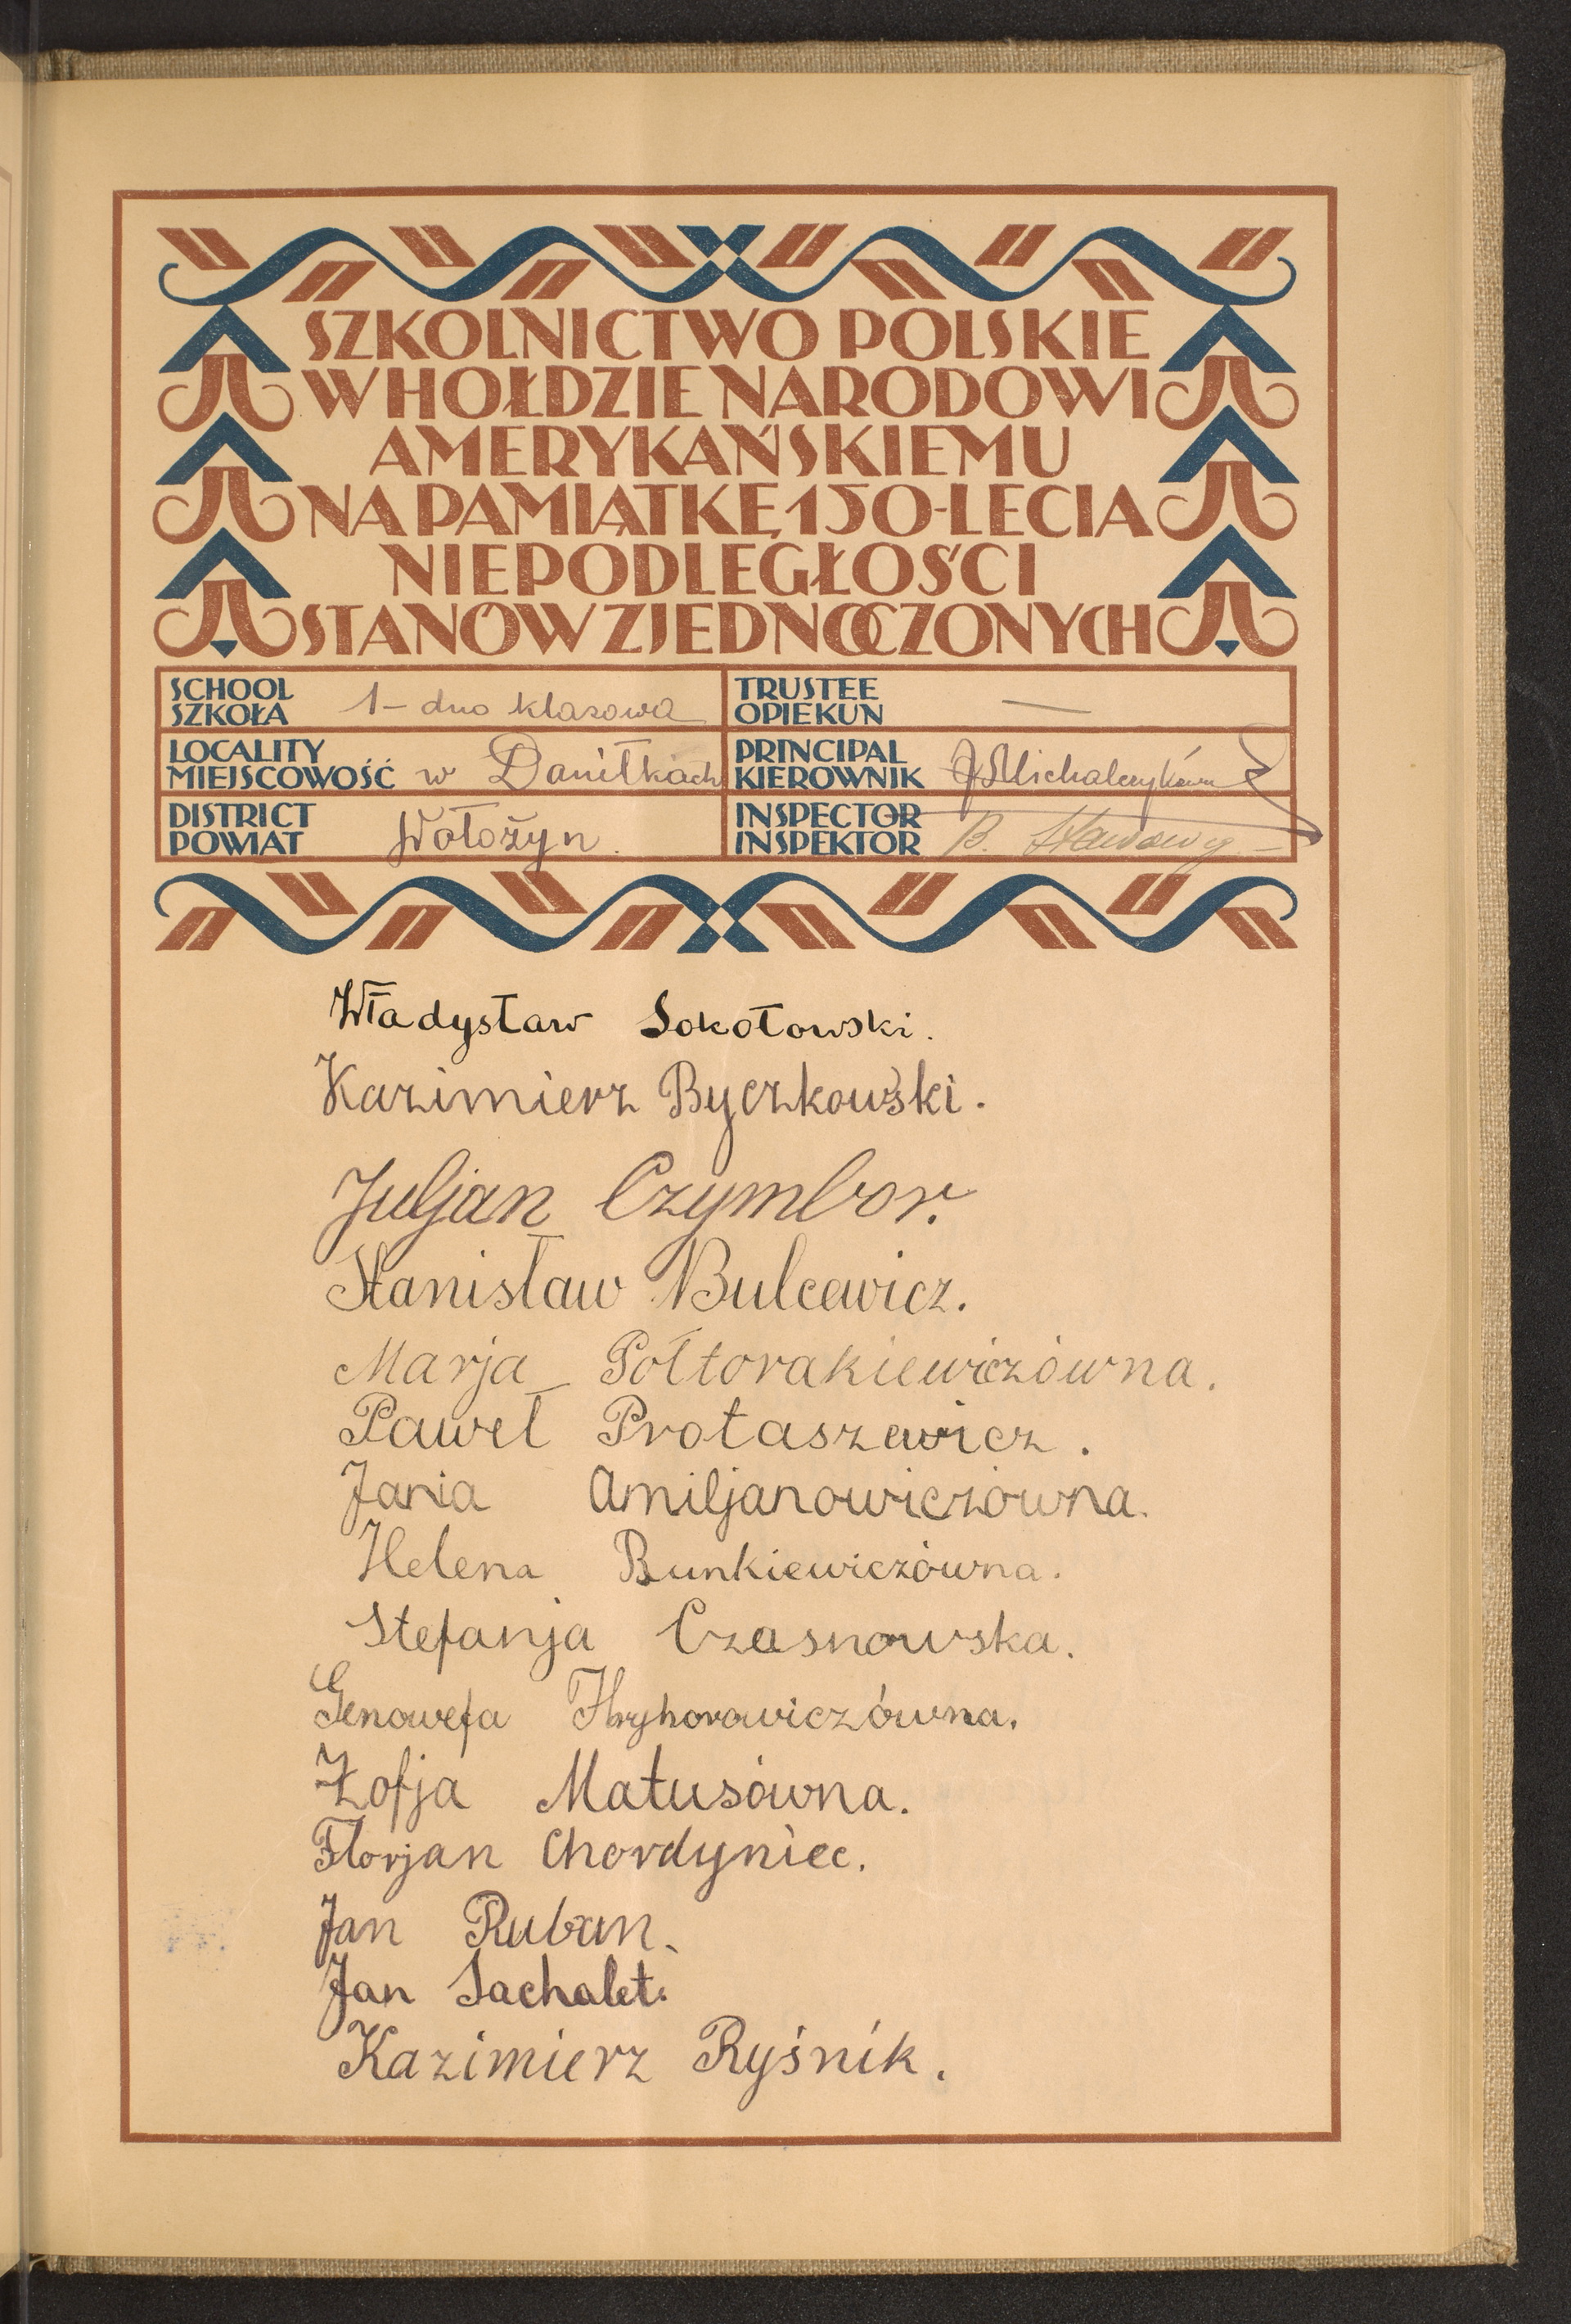 SZKOLNICTWO POLSKIE
W HOŁDZIE NARODOWI
AMERYKAŃSKIEMU
NA PAMIĄTKĘ 150-LECIA
NIEPODLEGŁOŚCI
STANÓW ZJEDNOCZONYCH
SCHOOL
SZKOŁA 1-dno klasowa
TRUSTEE
OPIEKUN —
LOCALITY
MIEJSCOWOŚĆ w Daniłkach
PRINCIPAL
KIEROWNIK J. Michalczykówna
DISTRICT
POWIAT Wołożyn.
INSPECTOR
INSPEKTOR B.
Władysław Sokołowski.
Kazimierz Byczkowski.
Juljan Czymbor.
Stanisław Bulcewicz.
Marja Półtorakiewiczówna.
Paweł Protaszewicz.
Jania Amiljanowiczówna.
Helena Bunkiewiczówna.
Stefanja Czasnowska.
Genowefa Hryhorowiczówna.
Zofja Matusówna.
Florjan Chordyniec.
Jan Ruban.
Jan Sachalet.
Kazimierz Ryśnik.